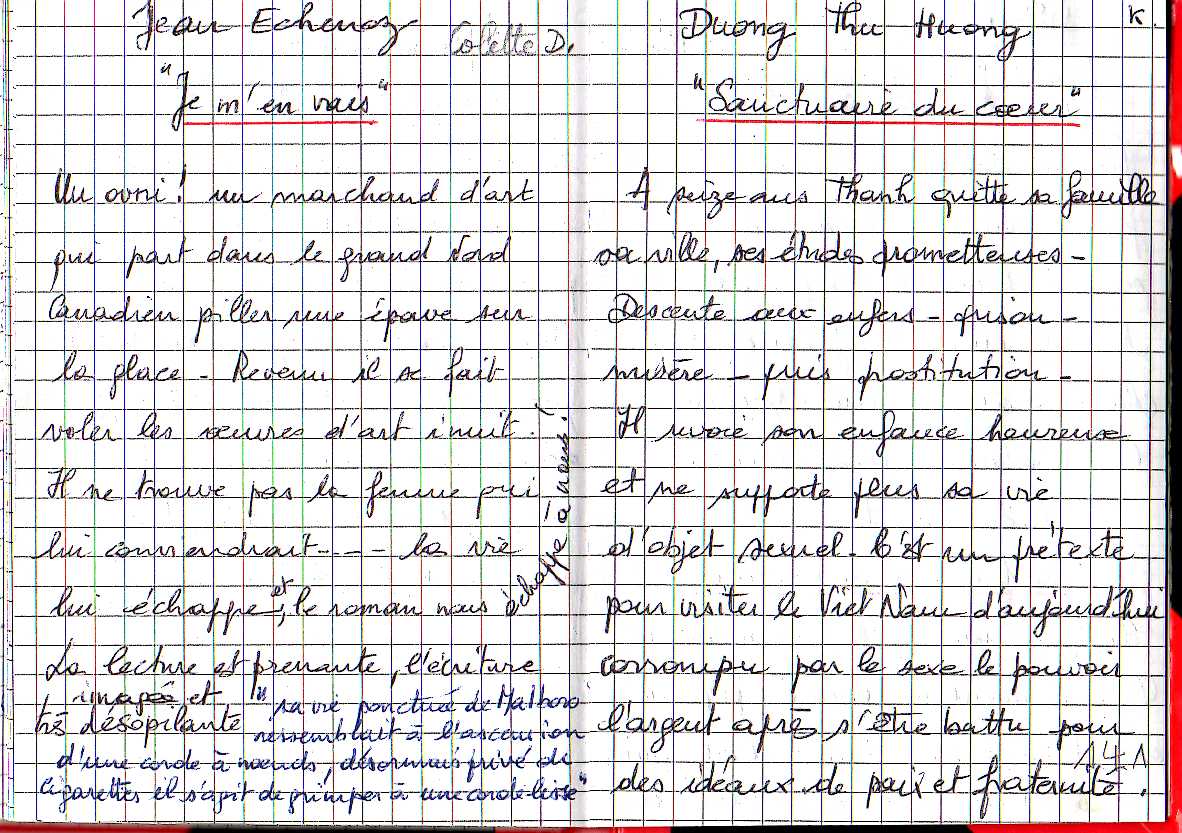 Jean Echenoz
Colette D.
"Je m'en vais"
Un ovni! un marchand d'art
qui part dans le grand Nord
Canadien piller une épave sur
la glace - Revenu il se fait
voler les oeuvres d'art inuit.
Il ne trouve pas la femme qui
lui conviendrait---- la vie
lui échappe et, le roman nous échappe à nous!
La lecture est prenante, l'écriture
imagée et
très désopilante "sa vie ponctuée de Malboro
ressemblait à l'ascension
d'une corde à noeuds, désormais privé de
cigarettes il s'agit de grimper à une corde lisse"
Duong Thu Huong
K.
"Sanctuaire du coeur"
A seize ans Thanh quitte sa famille
sa ville, ses études prometteuses -
Descente aux enfers - prison -
misère - puis prostitution -
Il revoie son enfance heureuse
et ne supporte plus sa vie
d'objet sexuel - C'est un prétexte
pour visiter le Viet Nam d'aujourd'hui
corrompu par le sexe le pouvoir
l'argent après s'être battu pour
des idéaux de paix et fraternité.
141